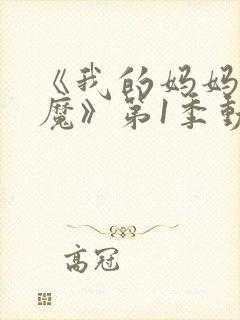 《我的妈妈
魔》第1季動
高冠